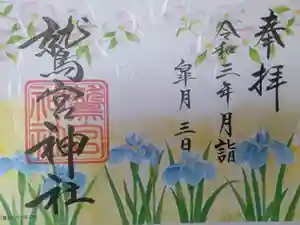 奉拝
令和三年月詣
皐月三日
鷲宮神社